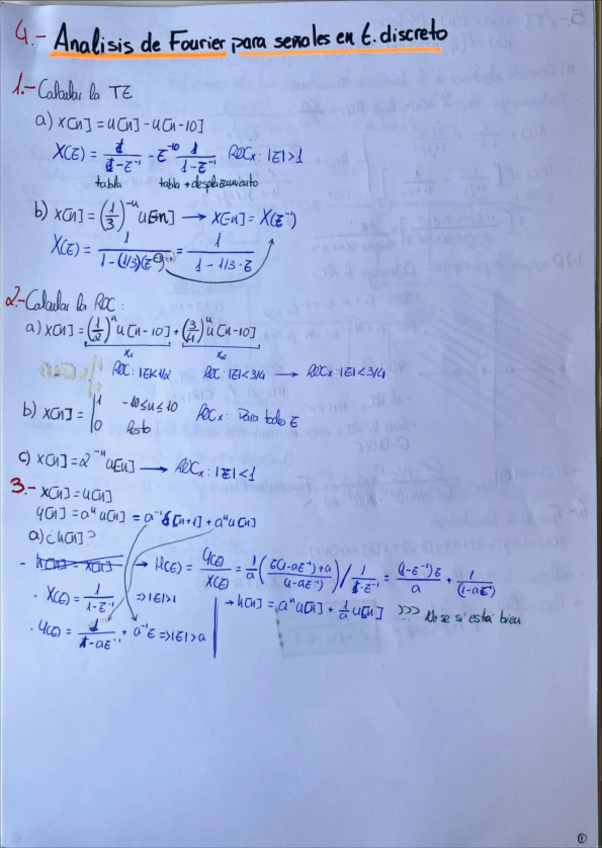 4.- Analisis de Fourier para señales en t. discreto
1.- Calcular la TZ
a) x[n] = u[n] - u[n-10]
X(z) = 1/(1-z⁻¹) - z⁻¹⁰ 1/(1-z⁻¹) ROCx: |z|>1
tabla tabla + desplazamiento
b) x[n] = (1/3)⁻ⁿ u[-n] → x[-n] = X(z⁻¹)
X(z) = 1/(1-(1/3)(z⁻¹)⁻¹) = 1/(1-1/3·z)
2.- Calcular la ROC:
a) x[n] = (1/2)ⁿ u[n-10] + (3/4)ⁿ u[n-10]
x₁ x₂
ROC: |z|<1/2 ROC: |z|<3/4 → ROCx: |z|<3/4
b) x[n] = | 1 -10≤n≤10
0 Resto
ROCx: Para todo z
c) x[n] = 2⁻ⁿ u[n] → ROCx: |z|<1
3.- x[n] = u[n]
y[n] = aⁿ u[n] = a⁻¹ δ[n+1] + aⁿ u[n]
a) ¿h[n]?
→ H(z) = Y(z)/X(z) = 1/a (z(1-az⁻¹)+a)/(1-az⁻¹) / 1/(1-z⁻¹) = (1-z⁻¹)z/a + 1/(1-az⁻¹)
· X(z) = 1/(1-z⁻¹) ⇒ |z|>1
→ h[n] = aⁿ u[n] + 1/a u[n] >>> No se si está bien
· Y(z) = 1/(1-az⁻¹) + a⁻¹z ⇒ |z|>a
1